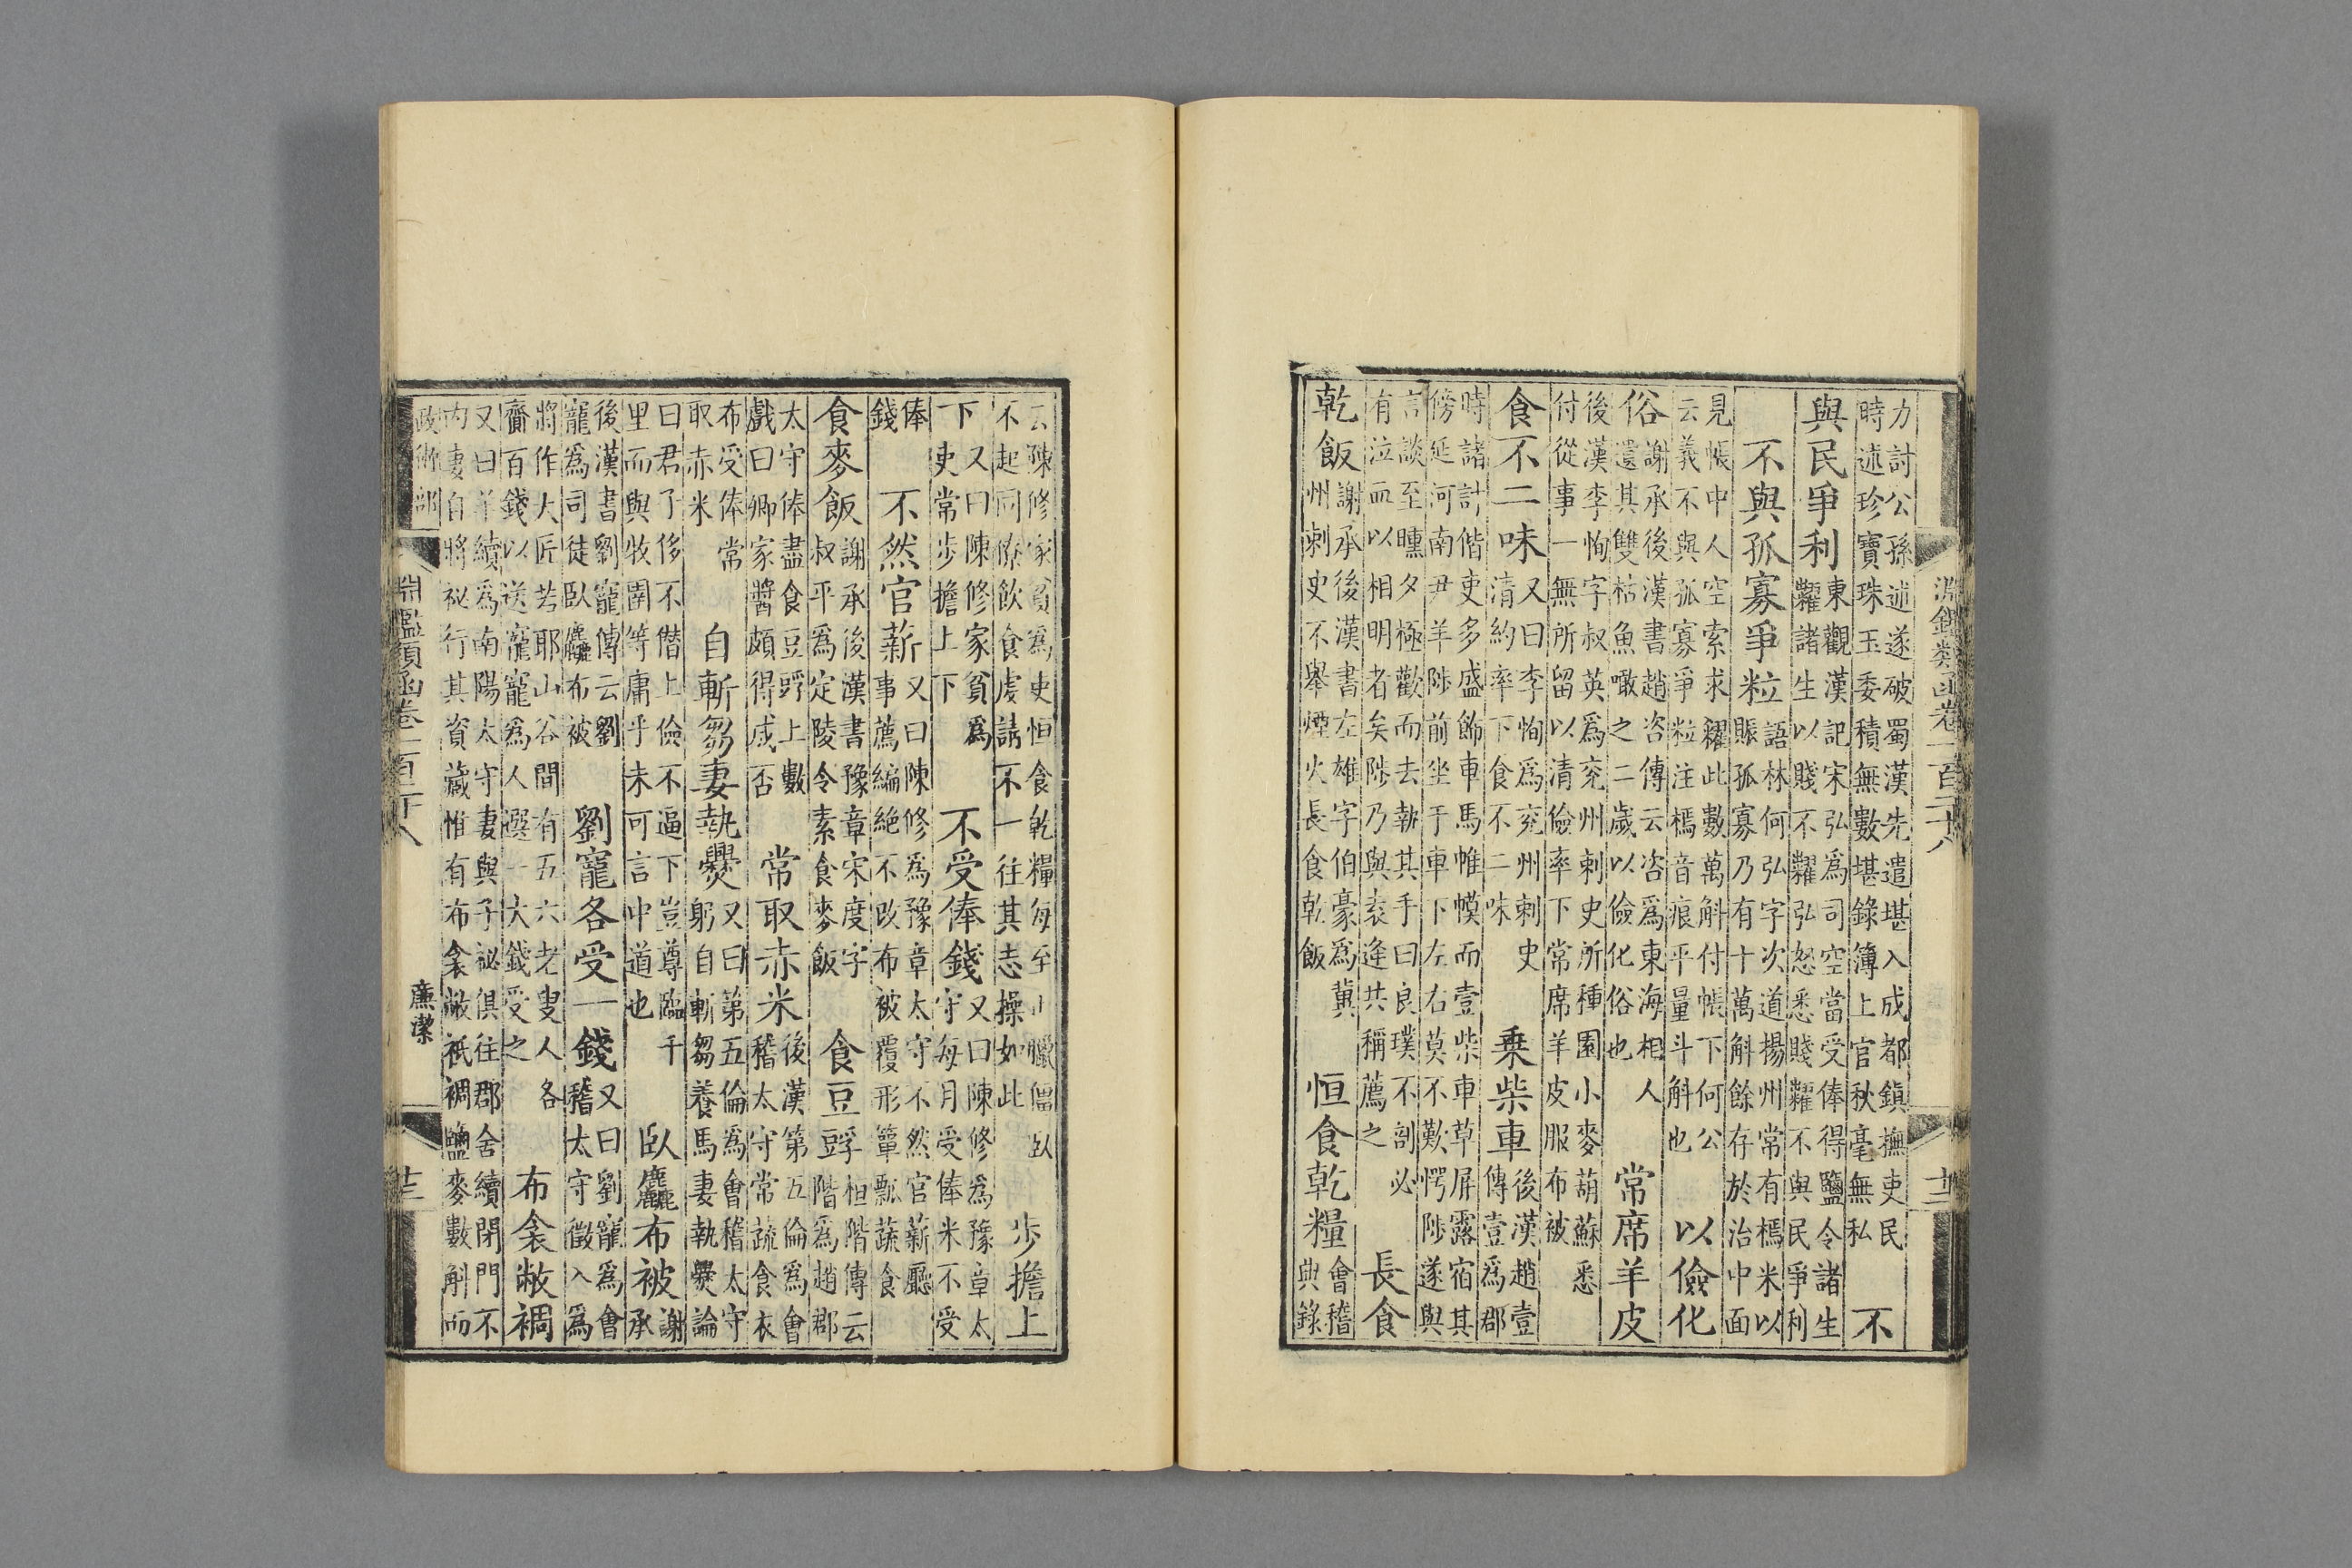 淵鑑類函卷一百二十八
十二
力討公孫述遂破蜀漢先遣堪入成都鎮撫吏民
時述珍寶珠玉委積無數堪錄簿上官秋毫無私
不
與民爭利
東觀漢記宋弘為司空當受俸得鹽令諸生
糶諸生以賤不糶弘怒悉賤糶不與民爭利
不與孤寡爭粒
語林何弘字次道揚州常有檽米以
賑孤寡乃有十萬斛餘存於治中面
見帳中人空索求糴此數萬斛付帳下何公
云義不與孤寡爭粒注檽音痕平量斗斛也
以儉化
俗
謝承後漢書趙咨傳云咨為東海相人
遺其雙枯魚噉之二歲以儉化俗也
常席羊皮
後漢李恂字叔英為兖州刺史所種園小麥葫蘇悉
付從事一無所留以清儉率下常席羊皮服布被
食不二味
又曰李恂為兖州刺史
清約率下食不二味
乗柴車
後漢趙壹
傳壹為郡
時諸計偕吏多盛飾車馬帷幙而壹柴車草屏露宿其
傍延河南尹羊陟前坐于車下左右莫不歎愕陟遂與
言談至曛夕極歡而去執其手曰良璞不剖必
有泣血以相明者矣陟乃與袁逢共稱薦之
長食
乾飯
謝承後漢書左雄字伯豪為冀
州刺史不舉煙火長食乾飯
恒食乾糧
會稽
典錄
云陳修家貧為吏恒食乾糧每至正臘僵臥
不起同僚飲食虔請不一往其志操如此
步擔上
下
又曰陳修家貧爲
吏常步擔上下
不受俸錢
又曰陳修為豫章太
守每月受俸米不受
俸
錢
不然官薪
又曰陳修為豫章太守不然官薪廳
事薦編絶不改布被覆形簞瓢蔬食
食麥飯
謝承後漢書豫章宋度字
叔平為定陵令素食麥飯
食豆䜴
桓階傳云
階為趙郡
太守俸盡食豆䜴上數
戲曰卿家醬頗得成否
常取赤米
後漢第五倫為會
稽太守常蔬食衣
布受俸常
取赤米
自斬芻妻執爨
又曰第五倫為會稽太守
躬自斬芻養馬妻執爨論
曰君子侈不僭上儉不逼下豈尊臨千
里而與牧圉等庸乎未可言中道也
臥麤布被
謝
承
後漢書劉寵傳云劉
寵為司徒臥麤布被
劉寵各受一錢
又曰劉寵為會
稽太守徵入為
將作大匠若耶山谷間有五六老叟人各
齎百錢以送寵寵為人選一大錢受之
布衾敝裯
又曰羊續為南陽太守妻與子祕俱往郡舍續閉門不
内妻自將祕行其資藏惟有布衾敝衹裯鹽麥數斛而
政術部
淵鑑類函卷一百二十八
廉潔
十三